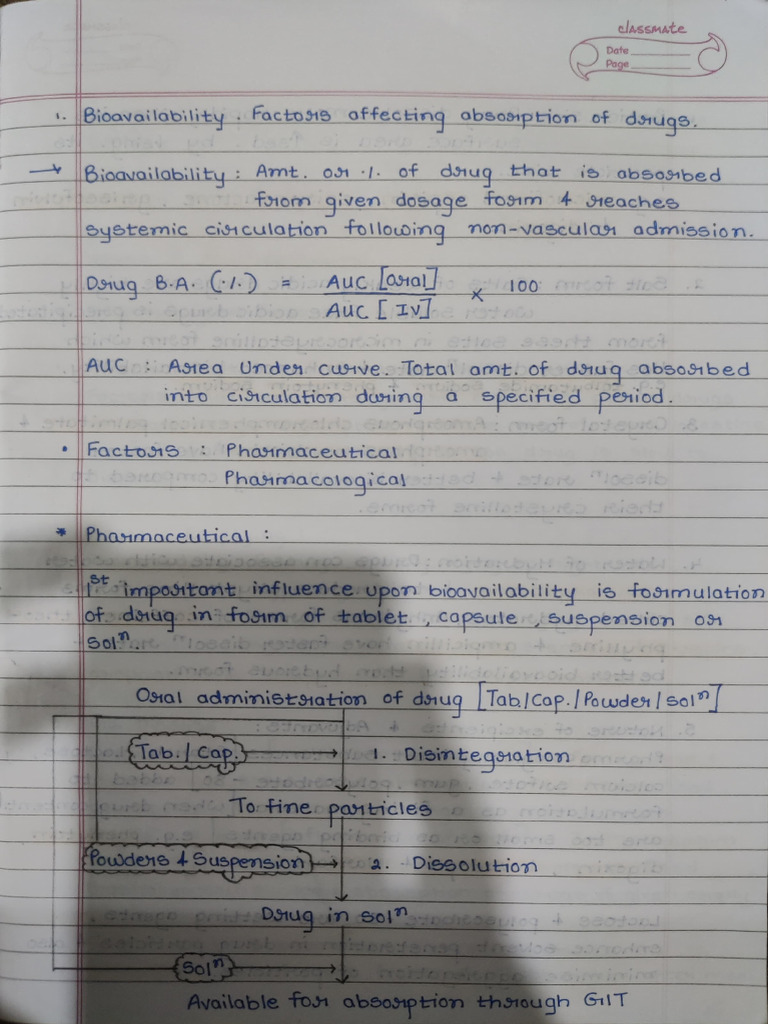 classmate
Date
Page
1. Bioavailability. Factors affecting absorption of drugs.
→ Bioavailability : Amt. or %. of drug that is absorbed
from given dosage form & reaches
systemic circulation following non-vascular admission.
Drug B.A. (%) = AUC [oral] / AUC [IV] × 100
AUC : Area Under curve. Total amt. of drug absorbed
into circulation during a specified period.
• Factors : Pharmaceutical
Pharmacological
* Pharmaceutical :
1st important influence upon bioavailability is formulation
of drug in form of tablet, capsule, suspension or
solⁿ.
Oral administration of drug [Tab./Cap./Powder/solⁿ]
Tab./Cap. → 1. Disintegration
To fine particles
Powders & Suspension → 2. Dissolution
Drug in solⁿ
solⁿ →
Available for absorption through GIT